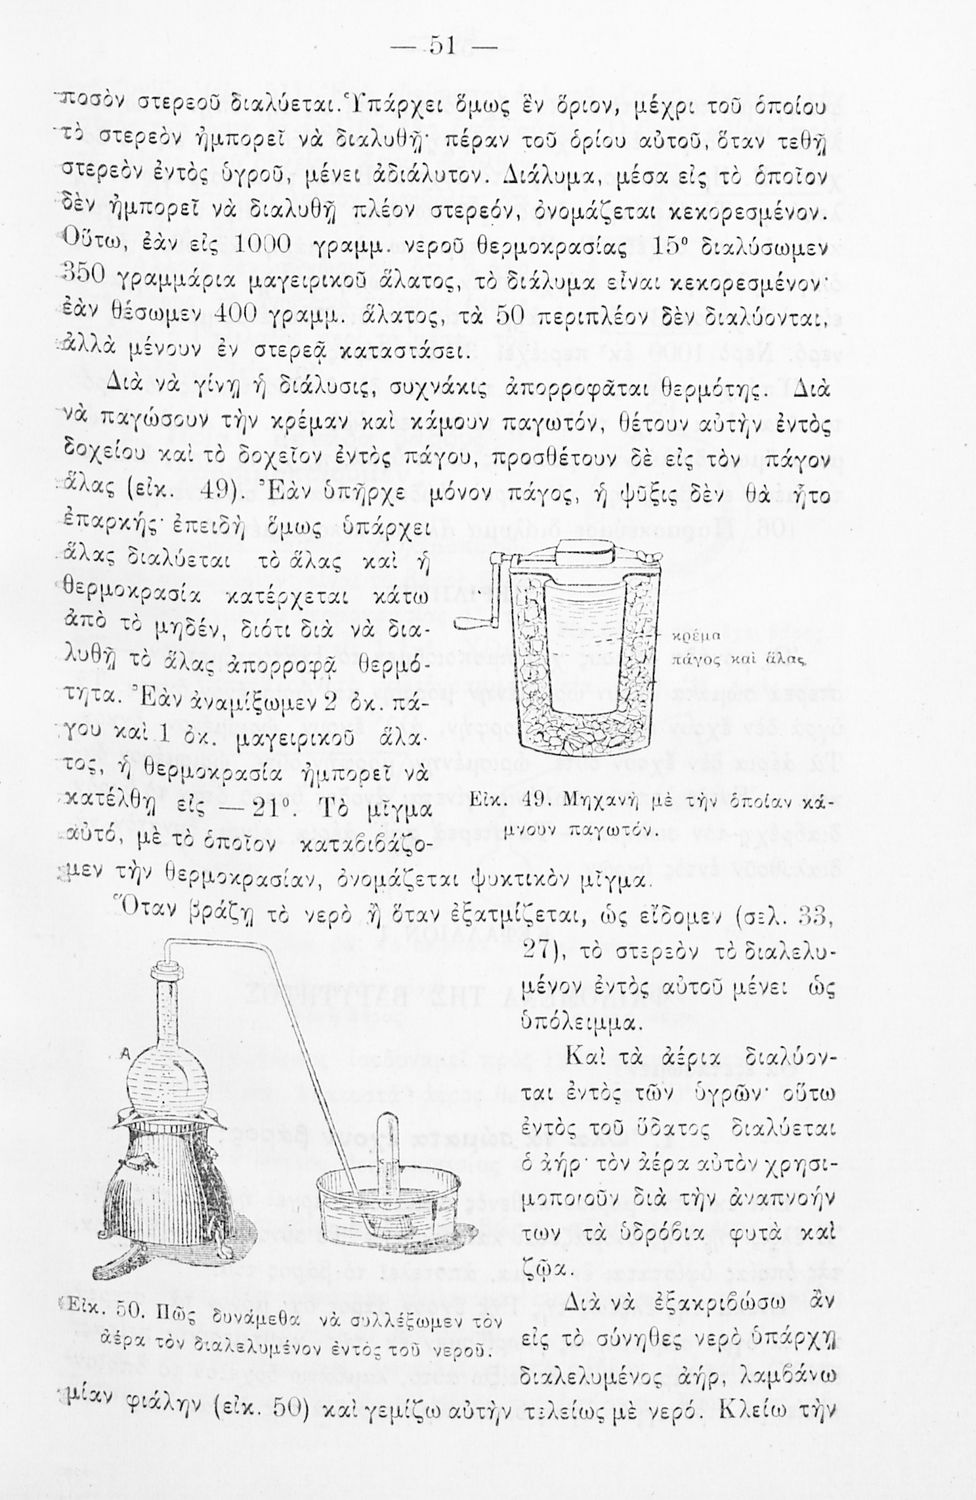 — 51 —
ποσὸν στερεοῦ διαλύεται. Ὑπάρχει ὅμως ἓν ὅριον, μέχρι τοῦ ὁποίου
τὸ στερεὸν ἠμπορεῖ νὰ διαλυθῇ· πέραν τοῦ ὁρίου αὐτοῦ, ὅταν τεθῇ
στερεὸν ἐντὸς ὑγροῦ, μένει ἀδιάλυτον. Διάλυμα, μέσα εἰς τὸ ὁποῖον
δὲν ἠμπορεῖ νὰ διαλυθῇ πλέον στερεόν, ὀνομάζεται κεκορεσμένον.
Οὕτω, ἐὰν εἰς 1000 γραμμ. νεροῦ θερμοκρασίας 15° διαλύσωμεν
350 γραμμάρια μαγειρικοῦ ἅλατος, τὸ διάλυμα εἶναι κεκορεσμένον·
ἐὰν θέσωμεν 400 γραμμ. ἅλατος, τὰ 50 περιπλέον δὲν διαλύονται,
ἀλλὰ μένουν ἐν στερεᾷ καταστάσει.
Διὰ νὰ γίνῃ ἡ διάλυσις, συχνάκις ἀπορροφᾶται θερμότης. Διὰ
νὰ παγώσουν τὴν κρέμαν καὶ κάμουν παγωτόν, θέτουν αὐτὴν ἐντὸς
δοχείου καὶ τὸ δοχεῖον ἐντὸς πάγου, προσθέτουν δὲ εἰς τὸν πάγον
ἅλας (εἰκ. 49). Ἐὰν ὑπῆρχε μόνον πάγος, ἡ ψῦξις δὲν θὰ ἦτο
ἐπαρκής· ἐπειδὴ ὅμως ὑπάρχει
ἅλας διαλύεται τὸ ἅλας καὶ ἡ
θερμοκρασία κατέρχεται κάτω
ἀπὸ τὸ μηδέν, διότι διὰ νὰ δια-
λυθῇ τὸ ἅλας ἀπορροφᾷ θερμό-
τητα. Ἐὰν ἀναμίξωμεν 2 ὀκ. πά-
γου καὶ 1 ὀκ. μαγειρικοῦ ἅλα-
τος, ἡ θερμοκρασία ἠμπορεῖ νὰ
κατέλθῃ εἰς — 21°. Τὸ μῖγμα
αὐτό, μὲ τὸ ὁποῖον καταβιβάζο-
μεν τὴν θερμοκρασίαν, ὀνομάζεται ψυκτικὸν μῖγμα.
κρέμα
πάγος καὶ ἅλας
Εἰκ. 49. Μηχανὴ μὲ τὴν ὁποίαν κά-
μνουν παγωτόν.
Ὅταν βράζῃ τὸ νερὸ ἢ ὅταν ἐξατμίζεται, ὡς εἴδομεν (σελ. 33,
27), τὸ στερεὸν τὸ διαλελυ-
μένον ἐντὸς αὐτοῦ μένει ὡς
ὑπόλειμμα.
Καὶ τὰ ἀέρια διαλύον-
ται ἐντὸς τῶν ὑγρῶν· οὕτω
ἐντὸς τοῦ ὕδατος διαλύεται
ὁ ἀήρ· τὸν ἀέρα αὐτὸν χρησι-
μοποιοῦν διὰ τὴν ἀναπνοήν
των τὰ ὑδρόβια φυτὰ καὶ
ζῷα.
A
Εἰκ. 50. Πῶς δυνάμεθα νὰ συλλέξωμεν τὸν
ἀέρα τὸν διαλελυμένον ἐντὸς τοῦ νεροῦ.
Διὰ νὰ ἐξακριβώσω ἂν
εἰς τὸ σύνηθες νερὸ ὑπάρχῃ
διαλελυμένος ἀήρ, λαμβάνω
μίαν φιάλην (εἰκ. 50) καὶ γεμίζω αὐτὴν τελείως μὲ νερό. Κλείω τὴν